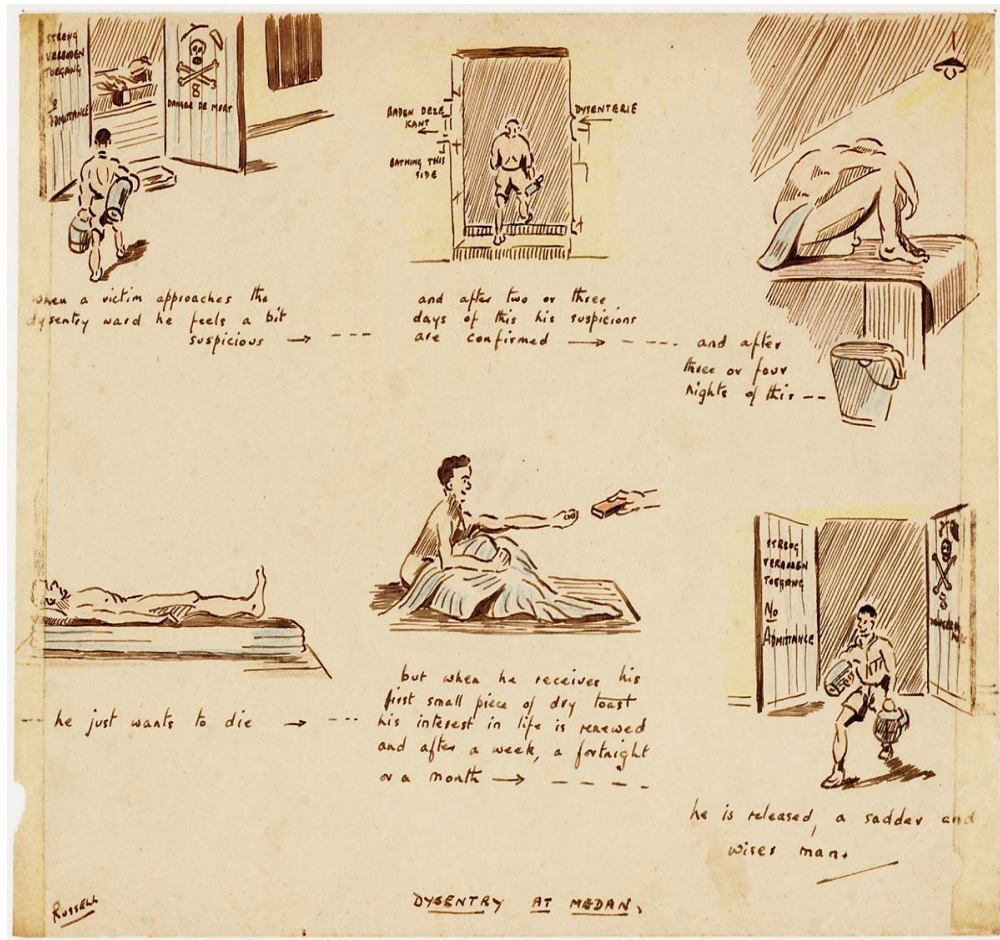 STRENG
VERBODEN
TOEGANG
ADMITTANCE
DANGER DE MORT
when a victim approaches the
dysentry ward he feels a bit
suspicious → ---
BADEN DEZE
KANT
BATHING THIS
SIDE
DYSENTERIE
and after two or three
days of this his suspicions
are confirmed → ----
and after
three or four
nights of this --
-- he just wants to die → ---
but when he receives his
first small piece of dry toast
his interest in life is renewed
and after a week, a fortnight
or a month → -----
STRENG
VERBODEN
TOEGANG
No
ADMITTANCE
he is released, a sadder and
wiser man.
RUSSELL
DYSENTRY AT MEDAN.